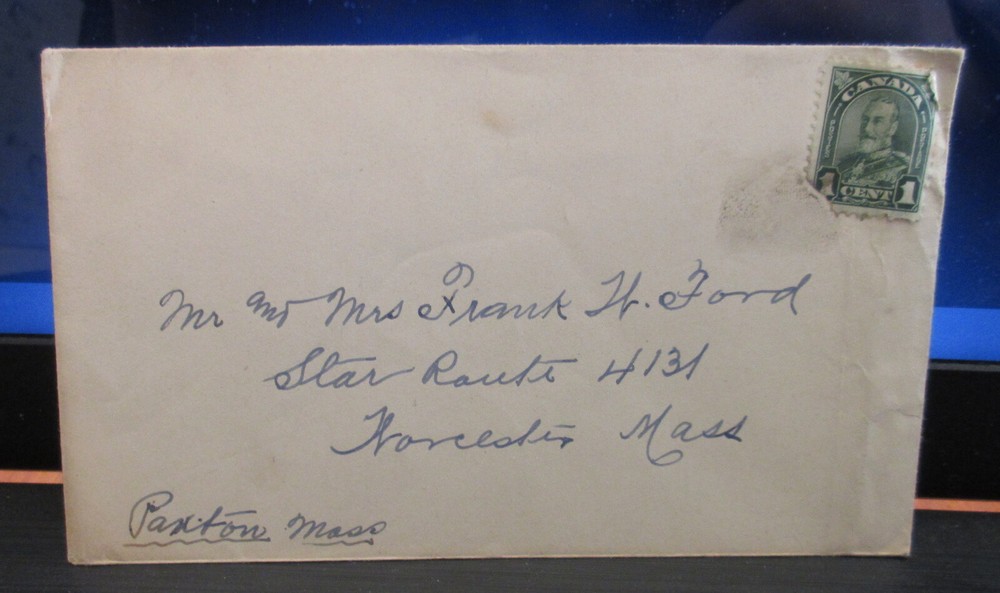 CANADA
1 CENT 1
Mr and Mrs Frank H. Ford
Star Route 4131
Worcester Mass
Paxton Mass